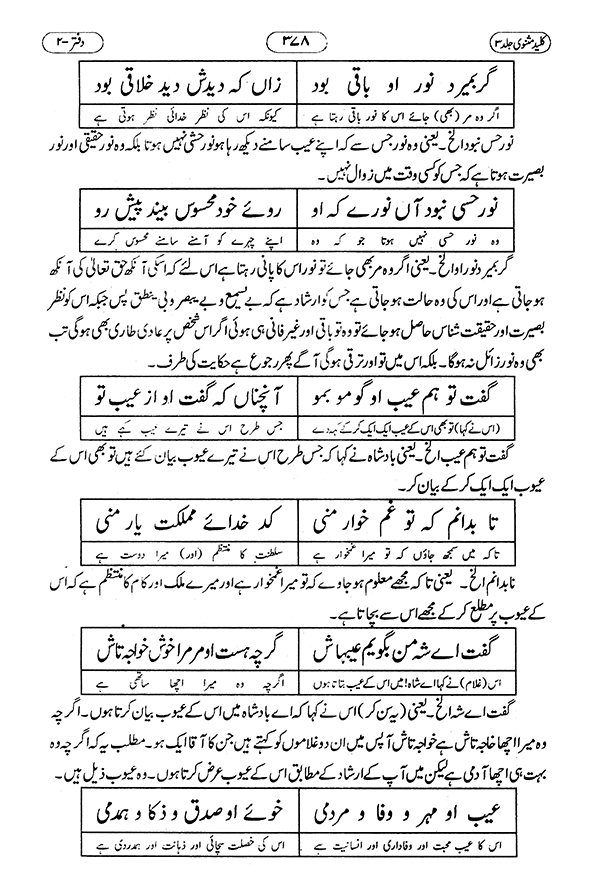 کلید مثنوی جلد ۳ ۳۷۸ دفتر -۲
گر بمیرد نور او باقی بود زاں کہ دیدش دید خلاقی بود
اگر وہ مر (بھی) جائے اس کا نور باقی رہتا ہے کیونکہ اس کی نظر خدائی نظر ہوتی ہے
نور حس نبود الخ۔ یعنی وہ نور جس سے کہ اپنے عیب سامنے دیکھ رہا ہو نور حسی نہیں ہوتا بلکہ وہ نور حقیقی اور نور
بصیرت ہوتا ہے کہ جس کو کسی وقت میں زوال نہیں۔
نور حسی نبود آں نورے کہ او روئے خود محسوس بیند پیش رو
وہ نور حسی نہیں ہوتا جو کہ وہ اپنے چہرے کو آمنے سامنے محسوس کرے
گر بمیرد نور او الخ۔ یعنی اگر وہ مر بھی جائے تو نور اس کا باقی رہتا ہے اس لئے کہ اسکی آنکھ حق تعالیٰ کی آنکھ
ہو جاتی ہے اور اس کی وہ حالت ہو جاتی ہے جس کو ارشاد ہے کہ بے یسمیع و بے یبصر و بی ینطق پس جبکہ اس کو نظر
بصیرت اور حقیقت شناس حاصل ہو جائے تو وہ تو باقی اور غیر فانی ہی ہوئی اگر اس شخص پر عادی طاری بھی ہوگی تب
بھی وہ نور زائل نہ ہوگا۔ بلکہ اس میں تو اور ترقی ہوگی آگے پھر رجوع ہے حکایت کی طرف۔
گفت تو ہم عیب او گو مو بمو آنچناں کہ گفت او از عیب تو
(اس نے کہا) تو بھی اس کے عیب ایک ایک کر کے کہہ دے جس طرح اس نے تیرے عیب کہے ہیں
گفت تو ہم عیب الخ۔ یعنی بادشاہ نے کہا کہ جس طرح اس نے تیرے عیوب بیان کئے ہیں تو بھی اس کے
عیوب ایک ایک کر کے بیان کر۔
تا بدانم کہ تو غم خوار منی کد خدائے مملکت یار منی
تاکہ میں سمجھ جاؤں کہ تو میرا غمخوار ہے سلطنت کا منتظم (اور) میرا دوست ہے
تا بدانم الخ۔ یعنی تاکہ مجھے معلوم ہو جاوے کہ تو میرا غمخوار ہے اور میرے ملک اور کام کا منتظم ہے کہ اس
کے عیوب پر مطلع کر کے مجھے اس سے بچاتا ہے۔
گفت اے شہ من بگویم عیبہاش گر چہ ہست او مر مرا خوش خواجہ تاش
اس (غلام) نے کہا اے شاہ! میں اس کے عیب بتاتا ہوں اگرچہ وہ میرا اچھا ساتھی ہے
گفت اے شہ الخ۔ یعنی (یہ سن کر) اس نے کہا کہ اے بادشاہ میں اس کے عیوب بیان کرتا ہوں۔ اگرچہ
وہ میرا اچھا خاجہ تاش ہے خواجہ تاش آپس میں ان دو غلاموں کو کہتے ہیں جن کا آقا ایک ہو۔ مطلب یہ کہ اگرچہ وہ
بہت ہی اچھا آدمی ہے لیکن میں آپ کے ارشاد کے مطابق اس کے عیوب عرض کرتا ہوں۔ وہ عیوب ذیل ہیں۔
عیب او مہر و وفا و مردمی خوئے او صدق و ذکا و ہمدمی
اس کا عیب محبت اور وفاداری اور انسانیت ہے اس کی خصلت سچائی اور ذہانت اور ہمدردی ہے